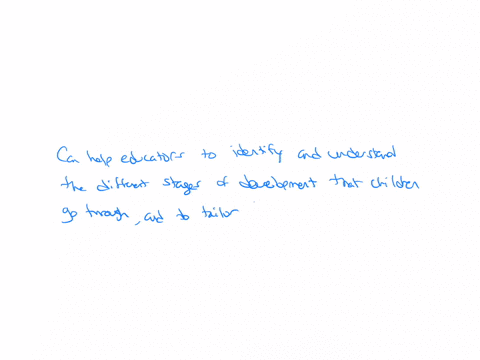 Can help educators to identify and understand
the different stages of development that children
go through, and to tailor